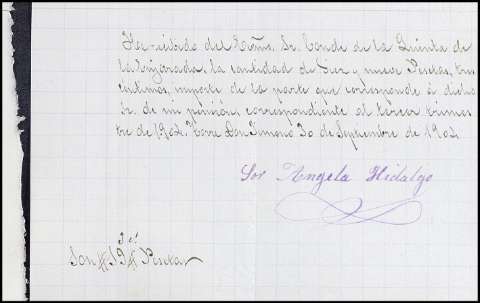 He recibido del Exmo. Sr. Conde de la Quinta de
la Enjarada, la cantidad de Diez y nueve Pesetas, tres
centimos, importe de la parte que corresponde á dicho
Sr. de mi pensión, correspondiente al tercer trimes
tre de 1902. Torre Don Jimeno 30 de Septiembre de 1902
Sor Angela Hidalgo
Son # 19 # Pesetas